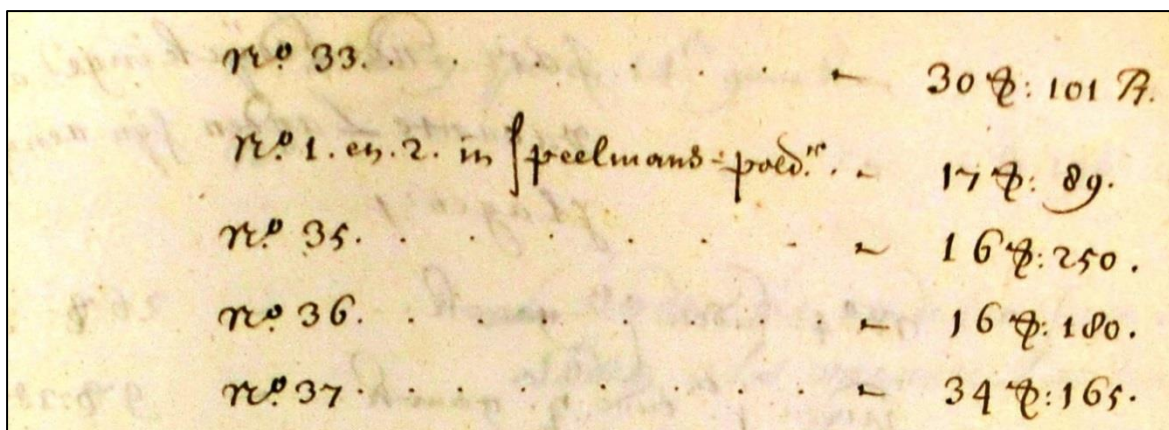 No. 33. . . . . . . - 30 g: 101 R.
No. 1. en. 2. in Speelmans-pold.r . - 17 g: 89.
No. 35. . . . . . . - 16 g: 250.
No. 36. . . . . . . . - 16 g: 180.
No. 37. . . . . . . - 34 g: 165.